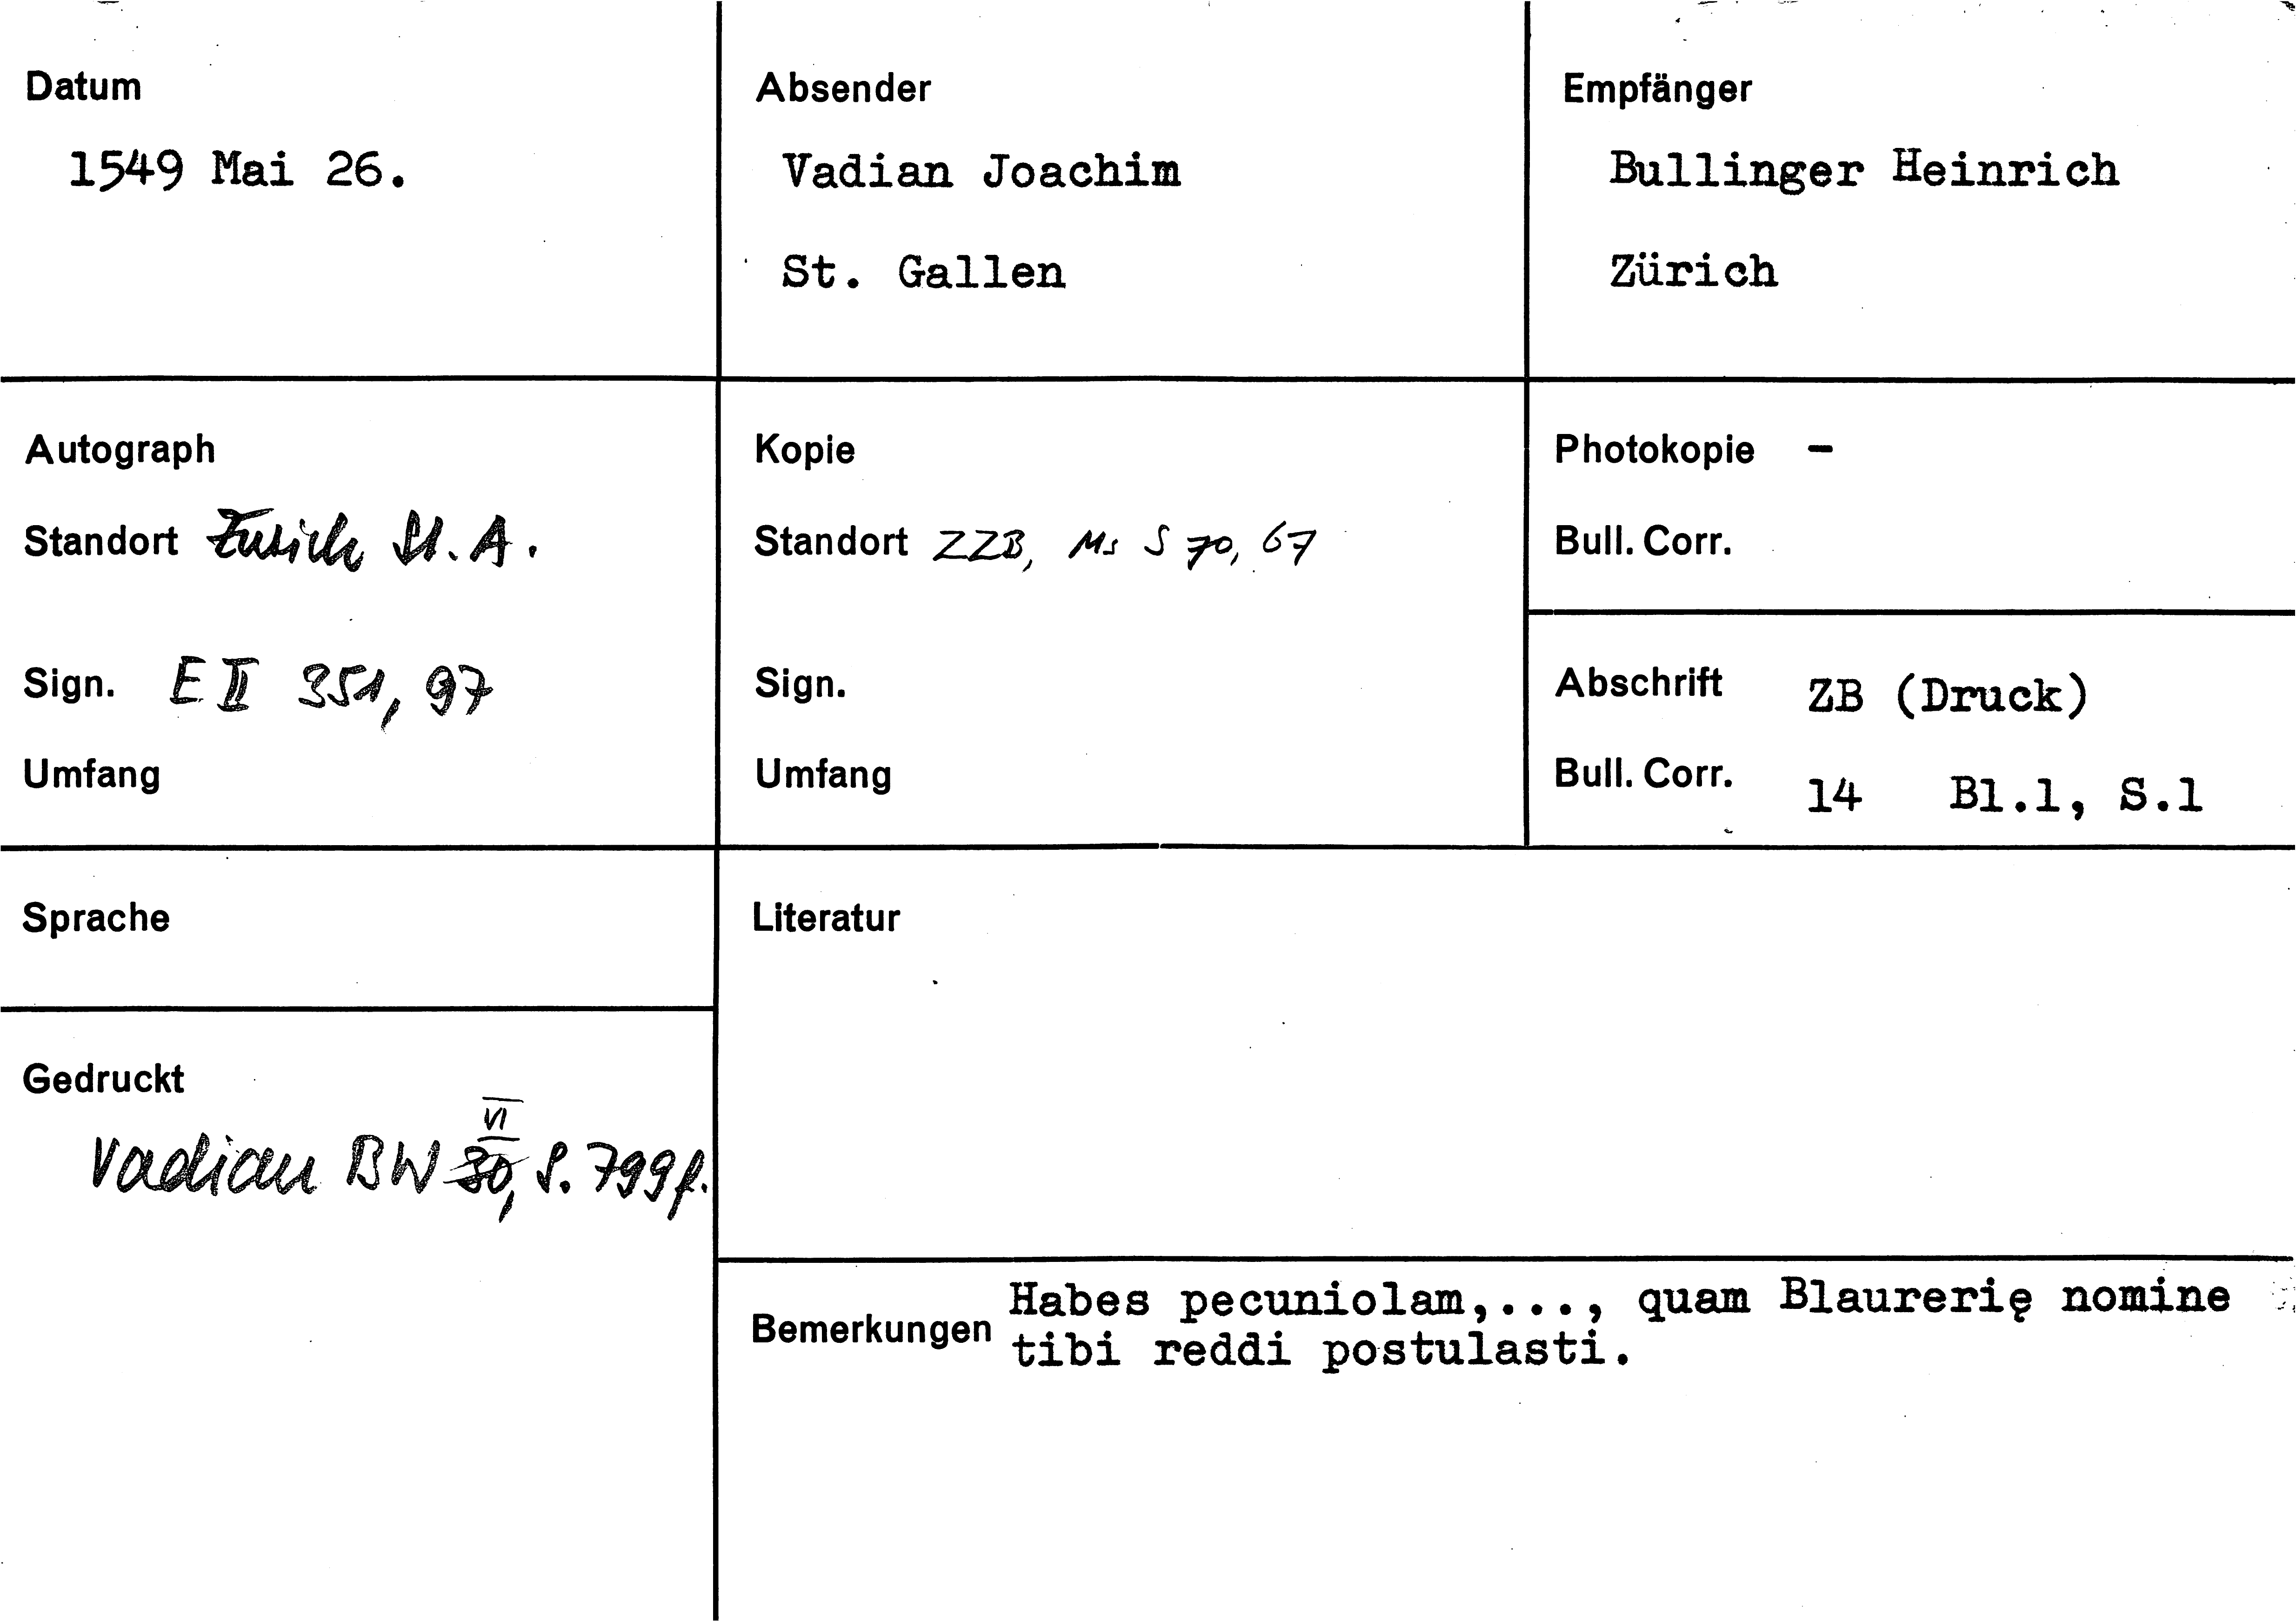 Datum
1549 Mai 26.
Absender
Vadian Joachim
St. Gallen
Empfänger
Bullinger Heinrich
Zürich
Autograph
Standort Zürich St. A.
Sign. E II 351, 97
Umfang
Kopie
Standort ZZB, Ms S 70, 67
Sign.
Umfang
Photokopie -
Bull. Corr.
Abschrift ZB (Druck)
Bull. Corr. 14 Bl.1, S.1
Sprache
Literatur
Gedruckt
VI
Vadian BW 30, S. 799f.
Bemerkungen Habes pecuniolam,..., quam Blaurerię nomine
tibi reddi postulasti.